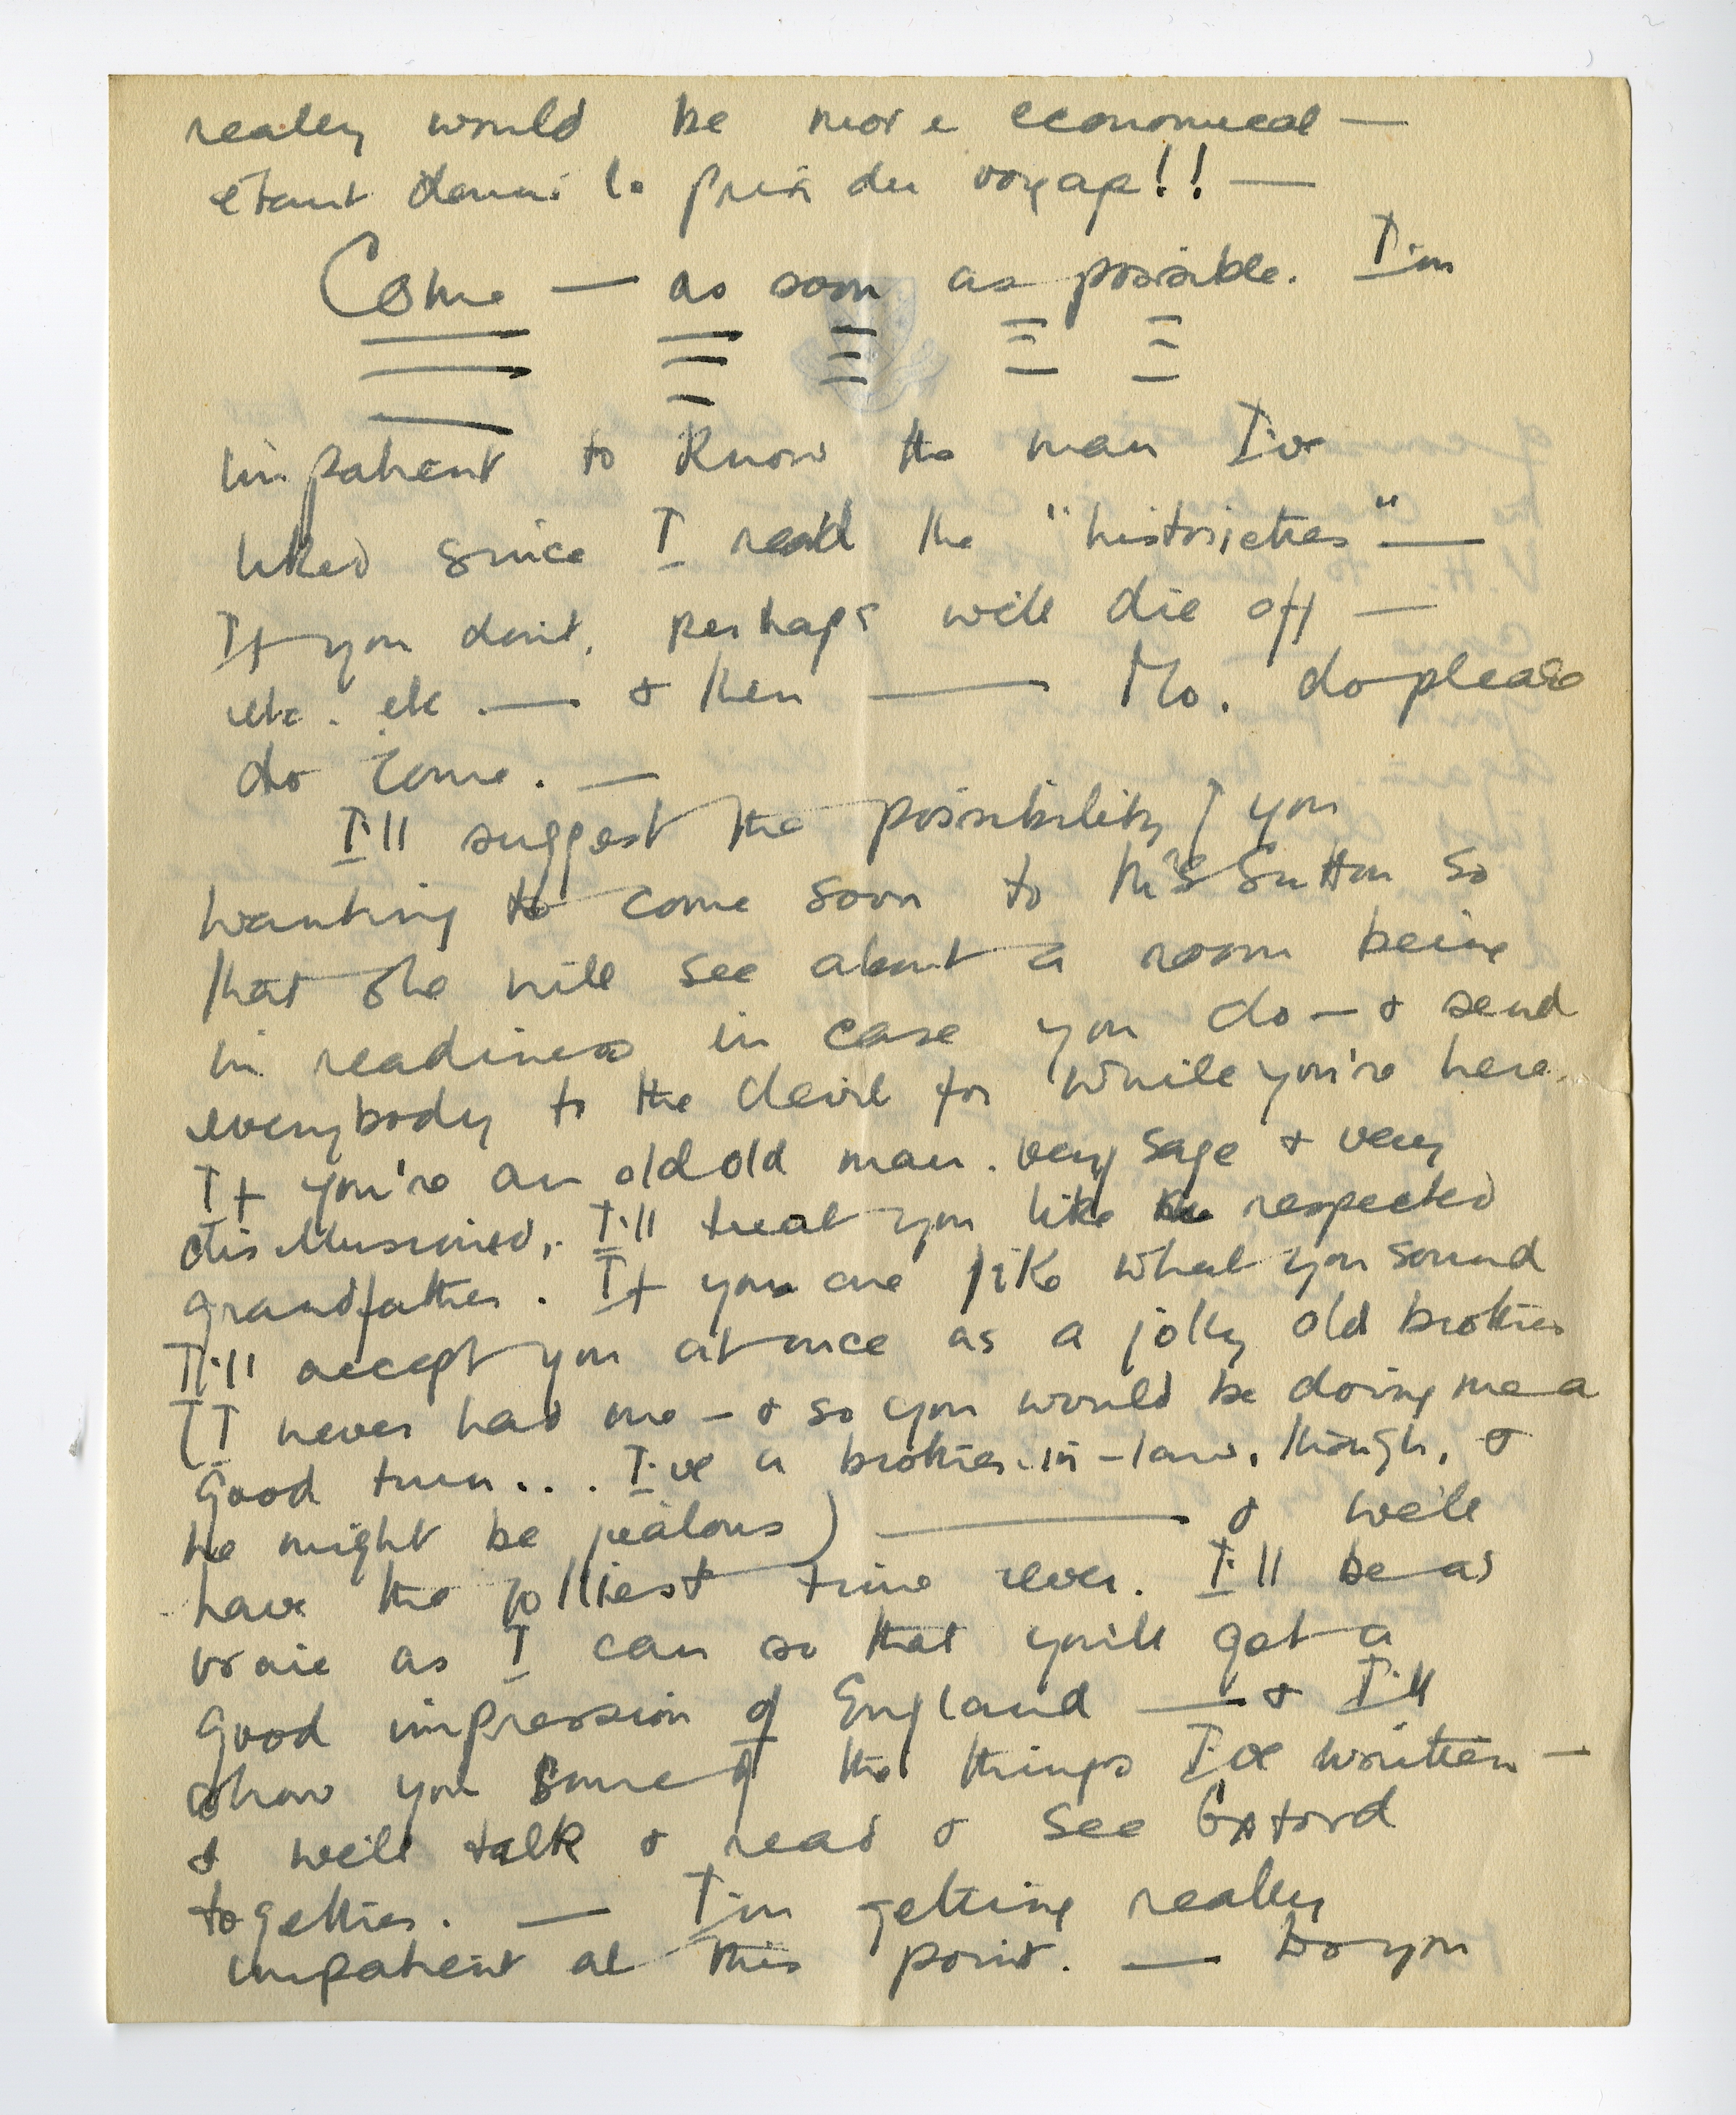 really would be more economical —
étant donné le prix du voyage!! —
Come — as soon as possible. I'm
impatient to know the man I've
liked since I read the "historiettes" —
If you don't, perhaps we'll die off —
etc. etc. — & then — No. do please
do come. —
I'll suggest the possibility of you
wanting to come soon to Mrs Sutton so
that she will see about a room being
in readiness in case you do — & send
everybody to the devil for while you're here.
If you're an old old man. very sage & very
disillusioned, I'll treat you like a respected
grandfather. If you are like what you sound
I'll accept you at once as a jolly old brother
(I never had one — & so you would be doing me a
good turn... I've a brother-in-law, though, &
he might be jealous) — & we'll
have the jolliest time ever. I'll be as
vraie as I can so that you'll get a
good impression of England — & I'll
show you some of the things I've written —
& we'll talk & read & see Oxford
together. — I'm getting really
impatient at this point. — Do you